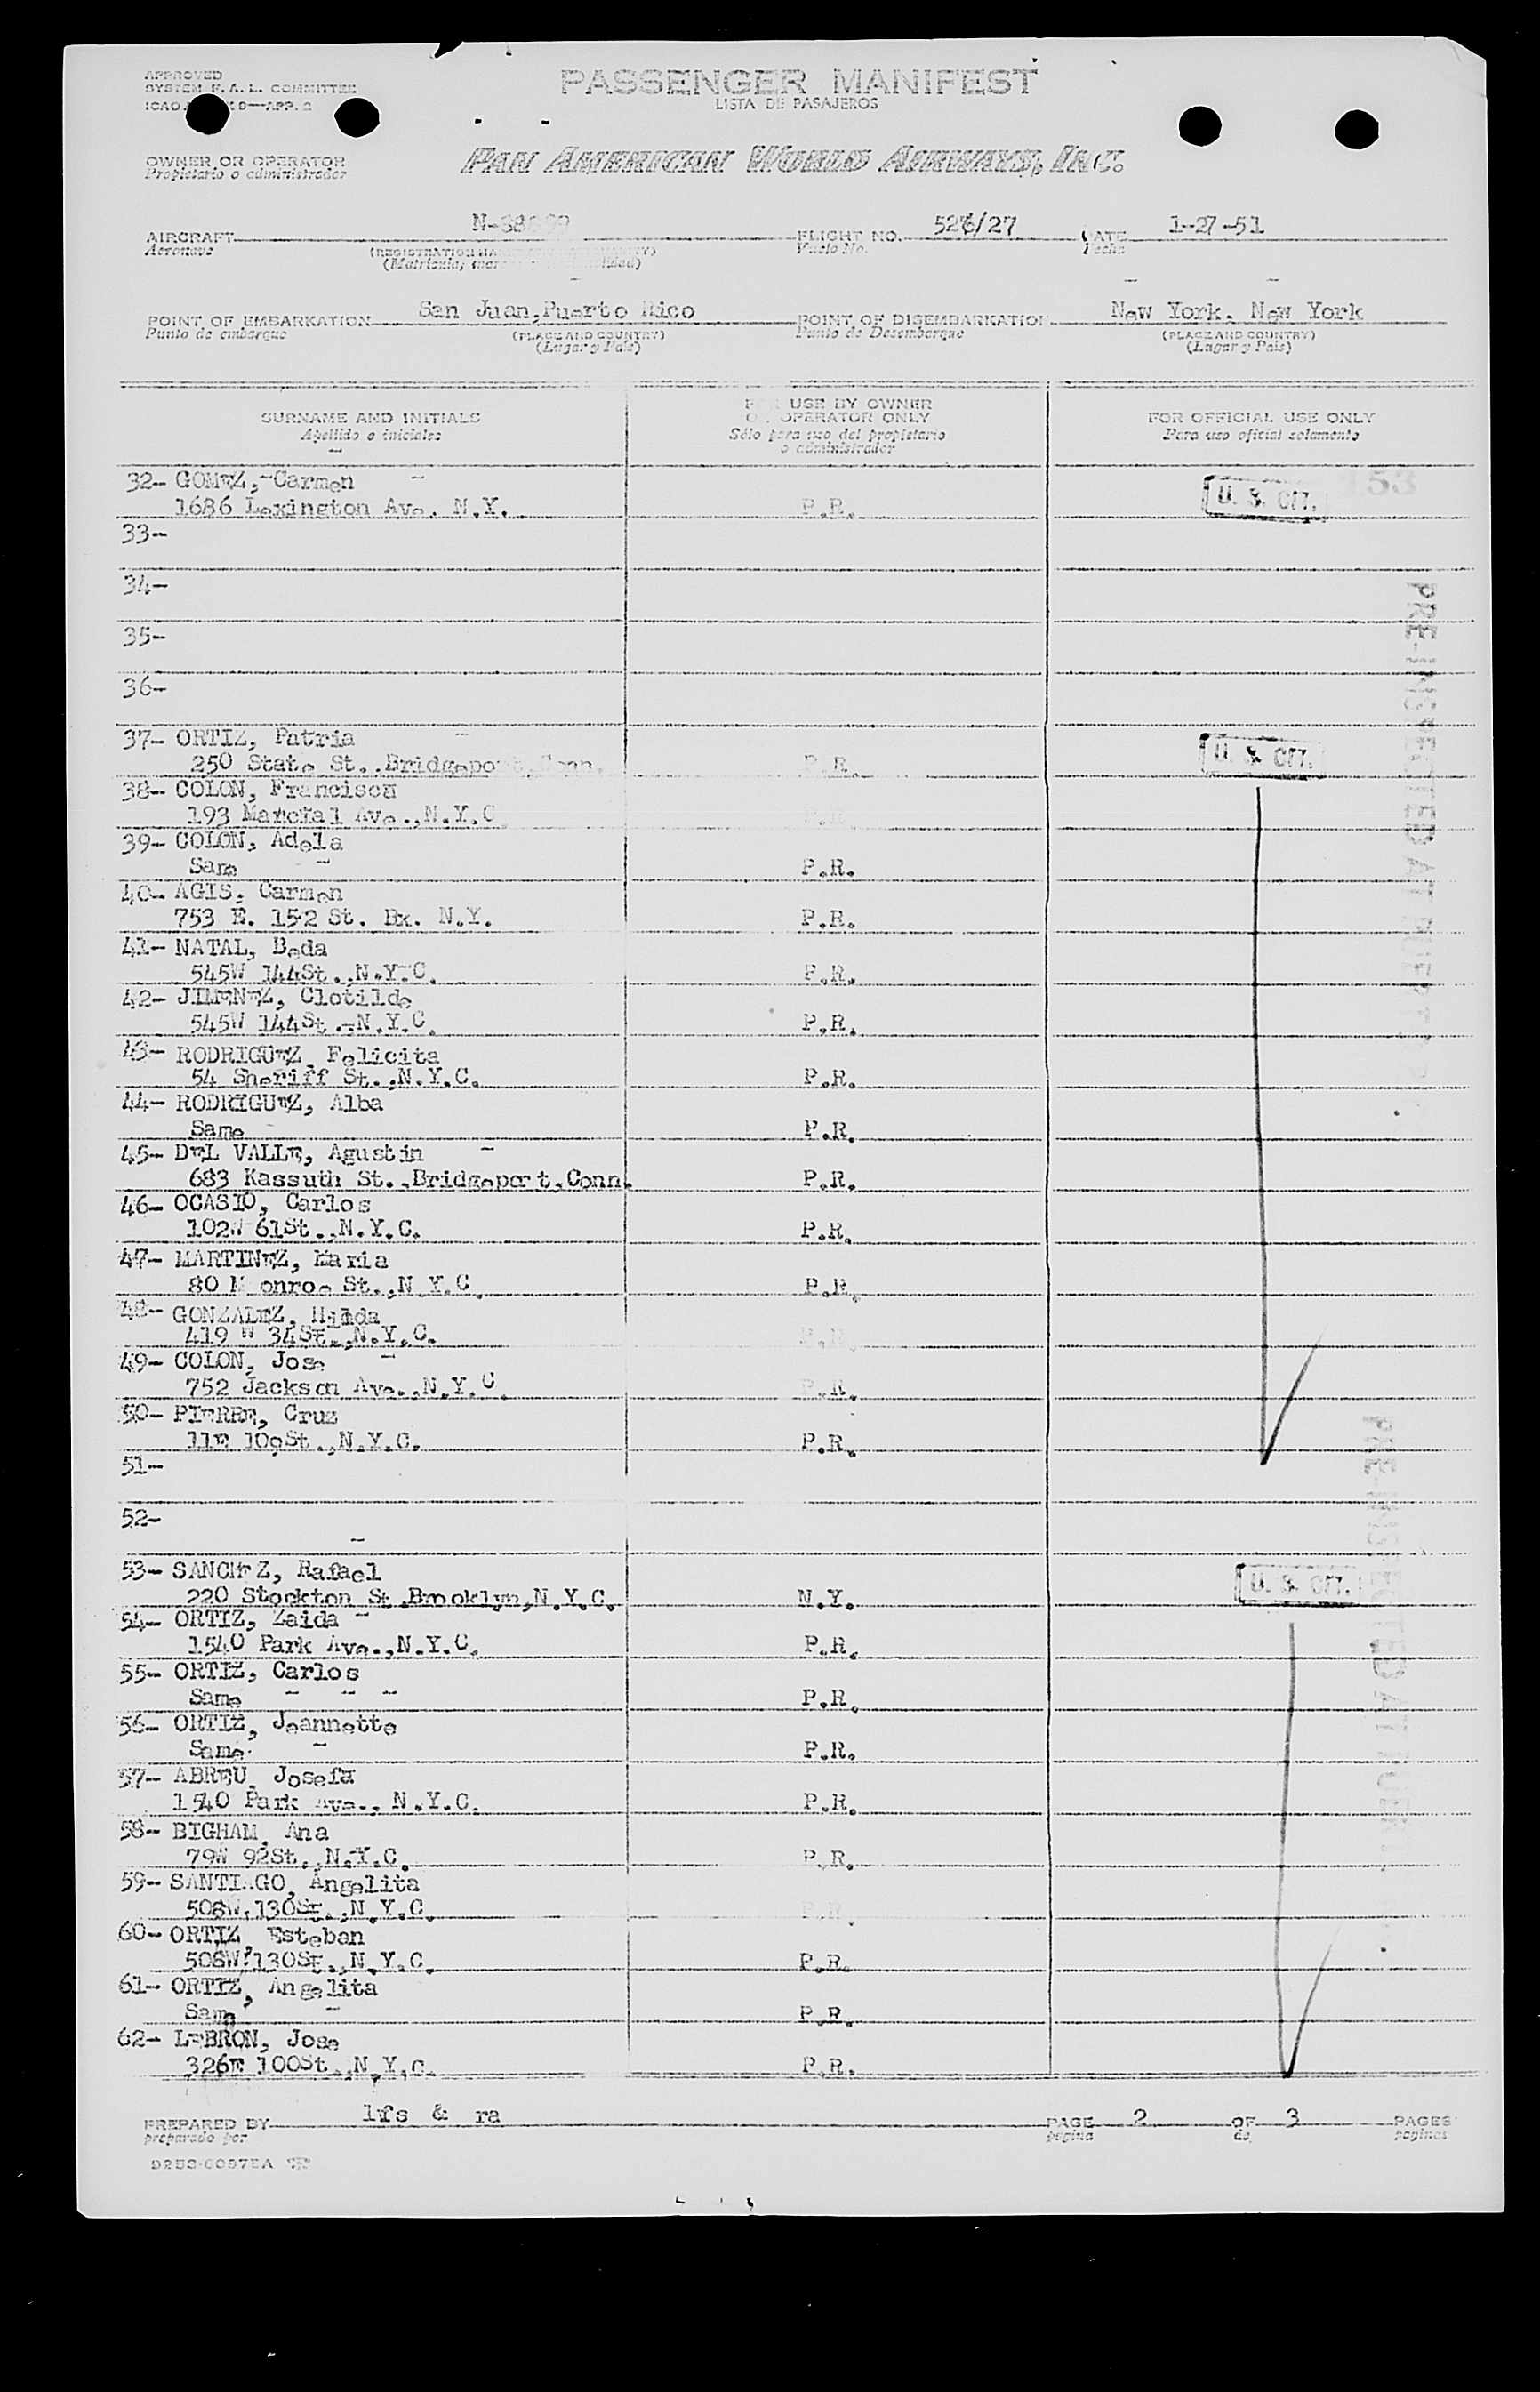 APPROVED
SYSTEM F. A. L. COMMITTEE
PASSENGER MANIFEST
LISTA DE PASAJEROS
OWNER OR OPERATOR
Propietario o administrador
PAN AMERICAN WORLD AIRWAYS, INC.
AIRCRAFT
Aeronave
FLIGHT NO. 526/27
Vuelo No.
DATE 1-27-51
Fecha
POINT OF EMBARKATION San Juan, Puerto Rico
Punto de embarque
(PLACE AND COUNTRY)
(Lugar y País)
POINT OF DISEMBARKATION New York, New York
Punto de Desembarque
(PLACE AND COUNTRY)
(Lugar y País)
SURNAME AND INITIALS
Apellido e iniciales
USE BY OWNER
OPERATOR ONLY
Sólo para uso del propietario
o administrador
FOR OFFICIAL USE ONLY
Para uso oficial solamente
153
32- GOMEZ, Carmen
1686 Lexington Ave. N.Y. P.R. U. S. CIT.
33-
34-
35-
36-
37- ORTIZ, Patria
250 State St., Bridgeport, Conn. P.R. U. S. CIT.
38- COLON, Francisca
193 Ave., N.Y.C. P.R.
39- COLON, Adela
Same P.R.
40- AGIS, Carmen
753 E. 152 St. Bx. N.Y. P.R.
41- NATAL, Beda
545W 144St., N.Y.C. P.R.
42- JIMENEZ, Clotilde
545W 144St., N.Y.C. P.R.
43- RODRIGUEZ, Felicita
54 Sheriff St., N.Y.C. P.R.
44- RODRIGUEZ, Alba
Same P.R.
45- DEL VALLE, Agustin
683 Kassuth St., Bridgeport, Conn. P.R.
46- OCASIO, Carlos
102W 61St., N.Y.C. P.R.
47- MARTINEZ, Maria
80 Monroe St., N.Y.C. P.R.
48- GONZALEZ, Hilda
419 W 34St., N.Y.C. P.R.
49- COLON, Jose
752 Jackson Ave., N.Y.C. P.R.
50- PIERRE, Cruz
11E 109St., N.Y.C. P.R.
51-
52-
53- SANCHEZ, Rafael
220 Stockton St. Brooklyn, N.Y.C. N.Y. U. S. CIT.
54- ORTIZ, Zaida
1540 Park Ave., N.Y.C. P.R.
55- ORTIZ, Carlos
Same P.R.
56- ORTIZ, Jeannette
Same P.R.
57- ABREU, Josefa
1540 Park Ave., N.Y.C. P.R.
58- BIGHAM, Ana
79W 92St., N.Y.C. P.R.
59- SANTIAGO, Angelita
508W. 130St., N.Y.C. P.R.
60- ORTIZ, Esteban
508W. 130St., N.Y.C. P.R.
61- ORTIZ, Angelita
Same P.R.
62- LEBRON, Jose
326E 100St., N.Y.C. P.R.
PRE-INSPECTED AT
PRE-INSPECTED AT
PREPARED BY lfs & ra
preparado por
PAGE 2 OF 3 PAGES
pagina de paginas